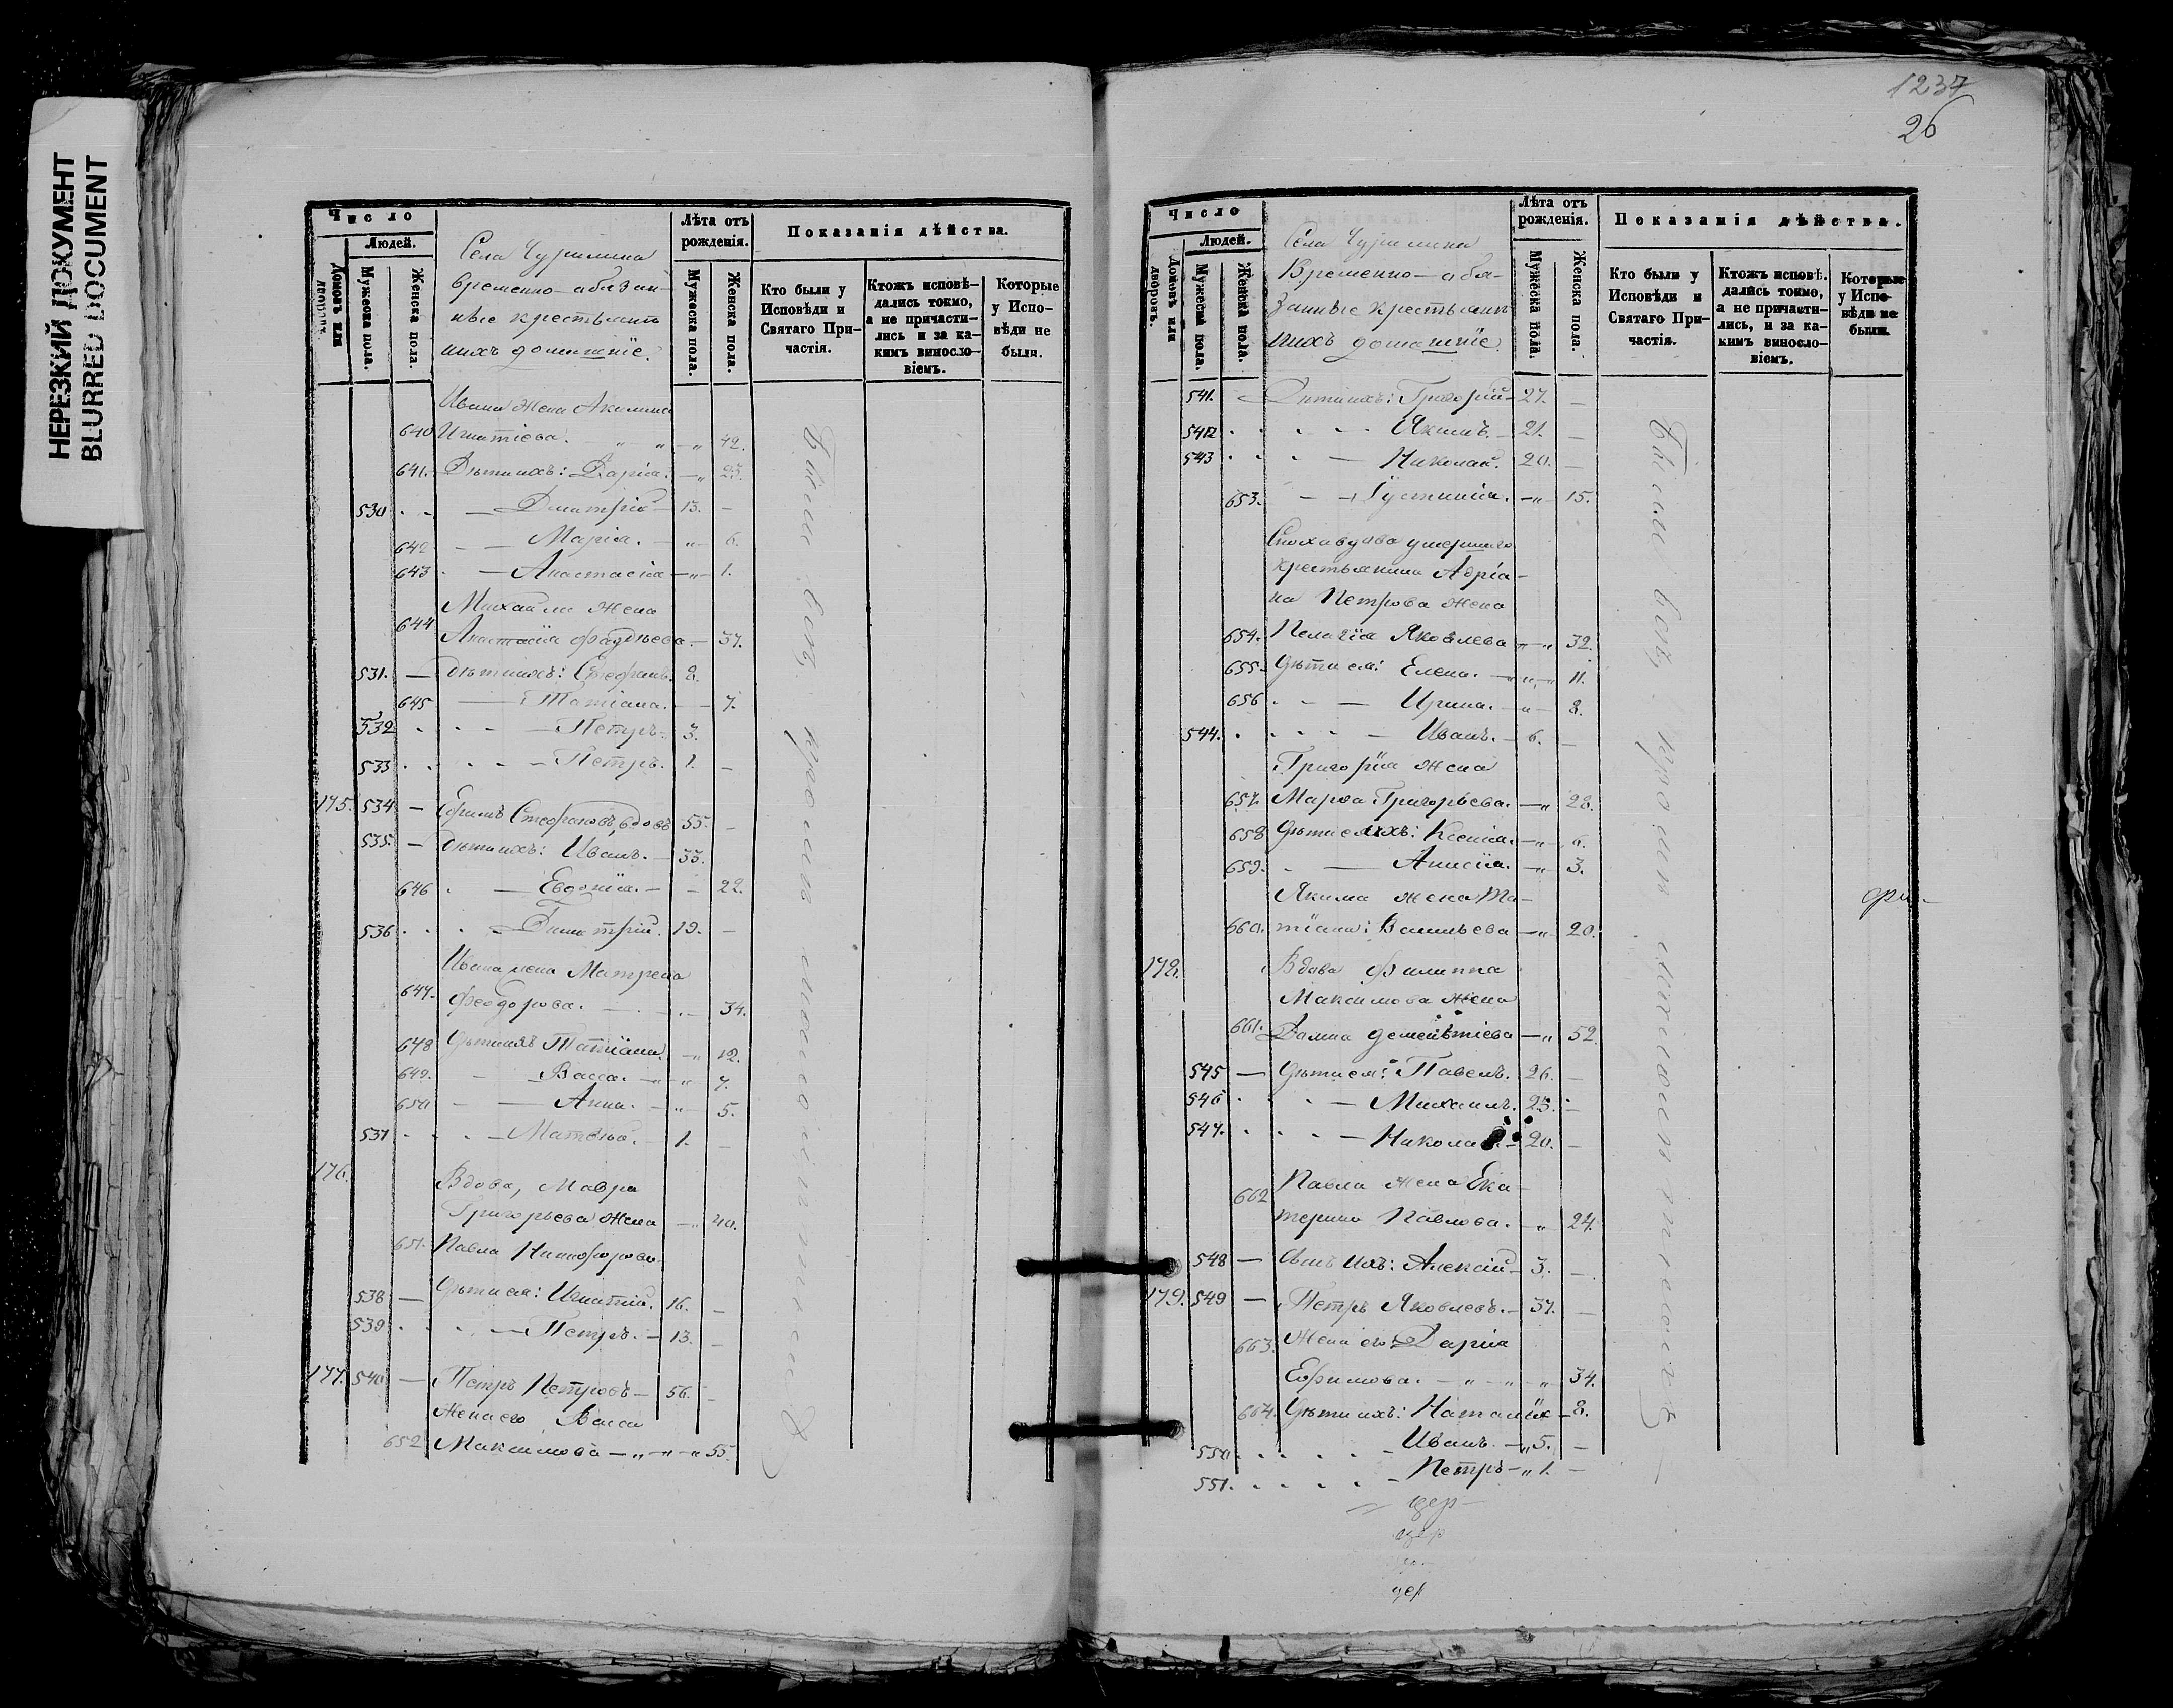 НЕРЕЗКИЙ ДОКУМЕНТ
BLURRED DOCUMENT
Число
Людей.
Домовъ или дворовъ.
Мужеска пола.
Женска пола.
Села Чурилина
временно-обязан-
ные крестьяне
ихъ домашніе.
Лѣта отъ рожденія.
Мужеска пола.
Женска пола.
Показанія дѣйства.
Кто были у Исповѣди и Святаго Причастія.
Ктожъ исповѣдались токмо, а не причастились и за какимъ винословіемъ.
Которые у Исповѣди не были.
Ивана жена Акилина
640 Игнатіева. 42.
641. Дѣти ихъ: Дарія. 23.
530 Димитрій 13.
642 Марія. 6.
643 Анастасія 1.
Михаила жена
644 Анастасія Фаддѣева 37.
531. дѣти ихъ: Стефанъ. 8.
645 Татіана. 7.
532 Петръ. 3.
533 Петръ. 1.
175. 534 Ефимъ Стефановъ, вдовъ 55.
535. дѣти ихъ: Иванъ. 33.
646 Евдокія. 22.
536 Димитрій. 19.
Ивана жена Матрена
647. Феодорова. 34.
648 Дѣти ихъ Татіана. 12.
649. Васса. 7.
650 Анна. 5.
537 Матвѣй. 1.
176. Вдова, Мавра
Григорьева жена 40.
651. Павла Никифорова
538 Дѣти ея: Игнатій. 16.
539 Петръ. 13.
177. 540 Петръ Петровъ 56.
Жена его Васса
652 Максимова 55.
Были всѣ
1237
26
Число
Людей.
Домовъ или дворовъ.
Мужеска пола.
Женска пола.
Села Чурилина
Временно-обя-
занные крестьяне
ихъ домашніе.
Лѣта отъ рожденія.
Мужеска пола.
Женска пола.
Показанія дѣйства.
Кто были у Исповѣди и Святаго Причастія.
Ктожъ исповѣдались токмо, а не причастились, и за какимъ винословіемъ.
Которые у Исповѣди не были.
541. Дѣти ихъ: Григорій 27.
542 Якимъ. 21.
543 Николай. 20.
653. Іустинія. 15.
Сноха вдова умершаго
крестьянина Адріа-
на Петрова жена
654. Пелагія Яковлева 32.
655. Дѣти ея: Елена. 11.
656 Ирина. 8.
544. Иванъ. 6.
Григорія жена
657. Марѳа Григорьева. 28.
658 Дѣти ихъ: Ксенія. 6.
659. Анисія. 3.
Якима жена Та-
660. тіана Васильева 20.
178. Вдова Филиппа
Максимова жена
661. Домна Дементіева 52.
545 Дѣти ея: Павелъ. 26.
546 Михаилъ. 23.
547. Николай. 20.
662 Павла жена Ека-
терина Павлова. 24.
548 сынъ ихъ: Алексій 3.
179. 549 Петръ Яковлевъ. 37.
663. Жена его Дарія
Ефимова. 34.
664. Дѣти ихъ: Наталія 8.
550. Иванъ 5.
551. Петръ 1.
Были всѣ